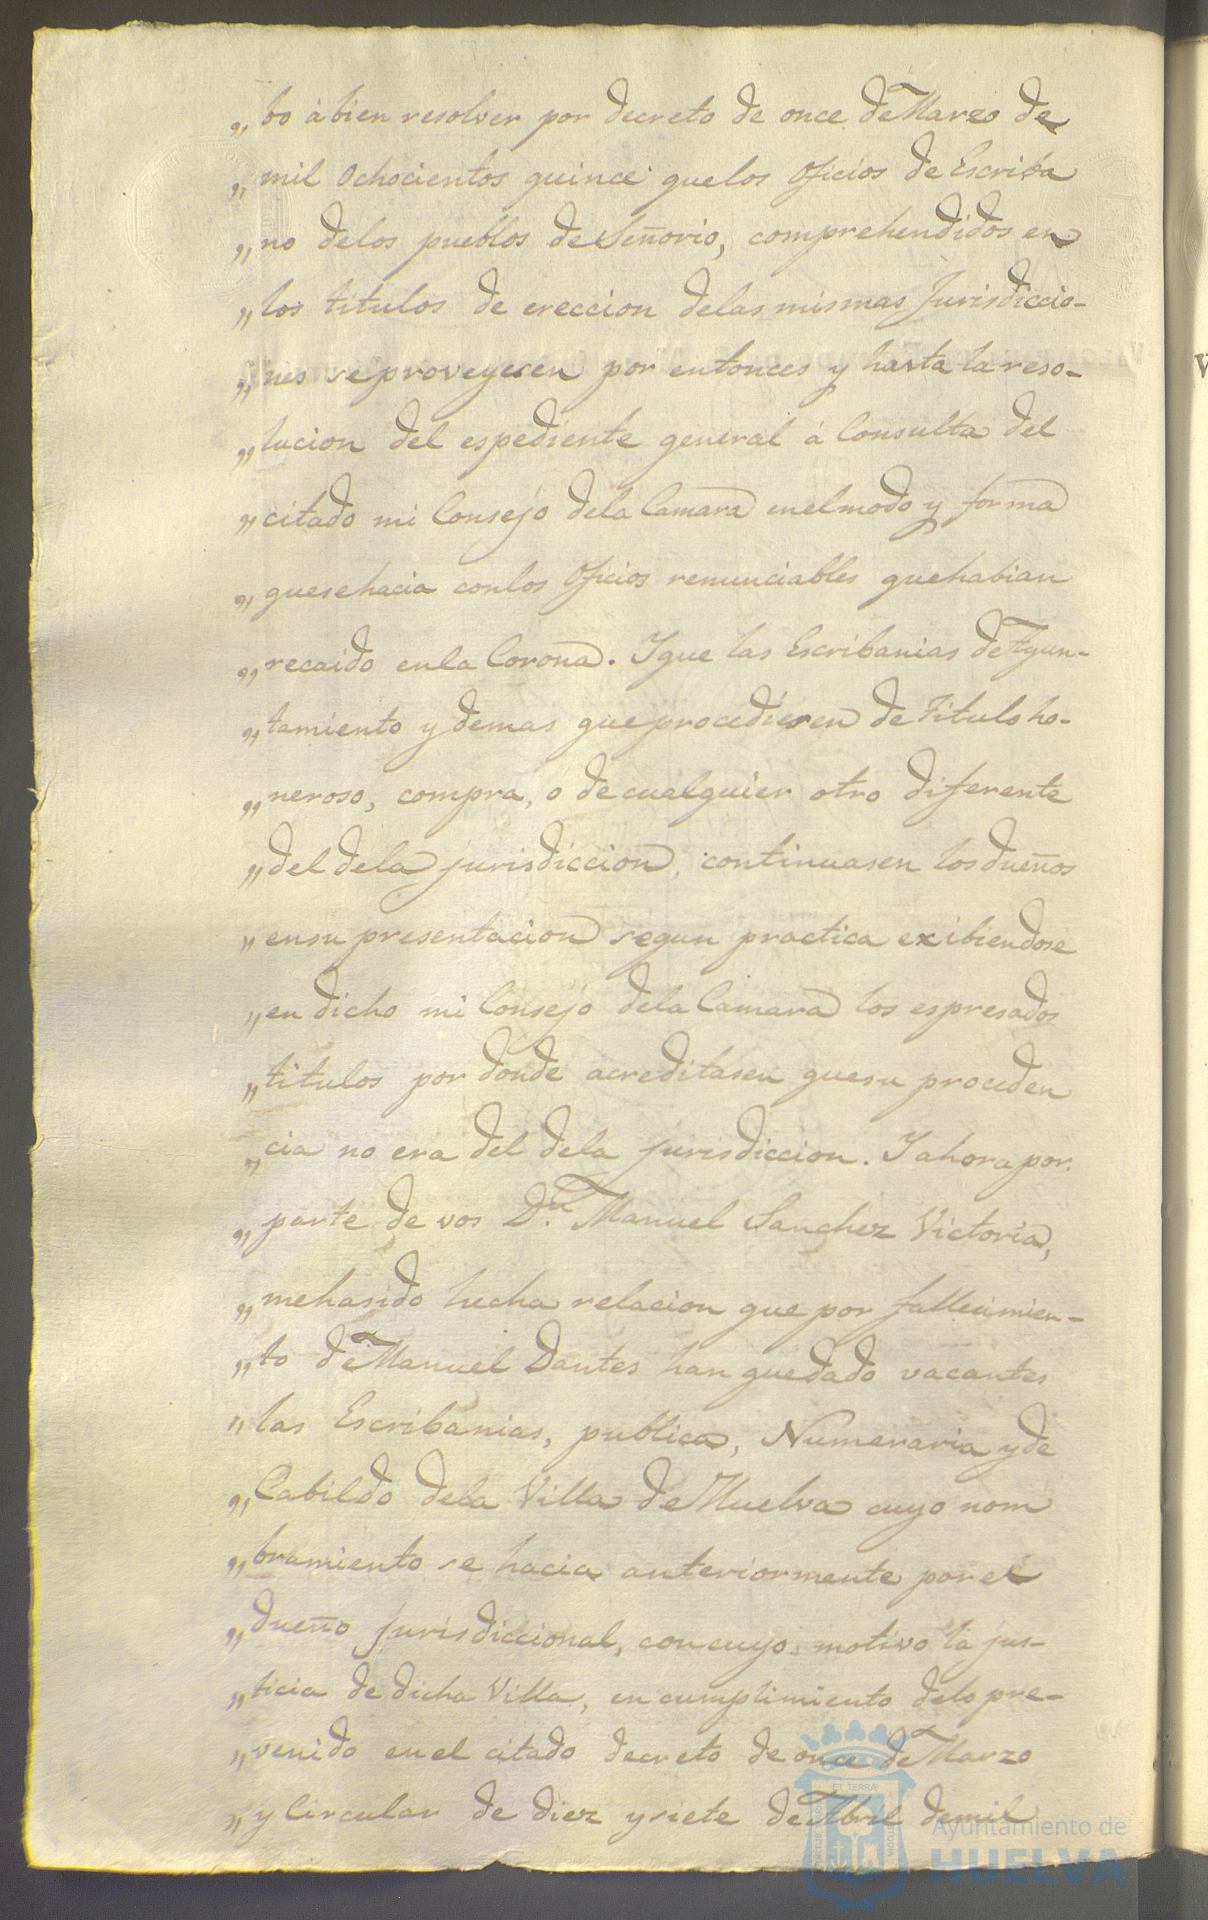 „ bo à bien resolver por decreto de once de Marzo de
„ mil Ochocientos quince que los Oficios de Escriba
„ no de los pueblos de Señorio, comprehendidos en
„ los titulos de ereccion de las mismas Jurisdiccio-
„ nes se proveyesen por entonces y hasta la reso-
„ lucion del espediente general á Consulta del
„ citado mi Consejo de la Camara en el modo y forma
„ que se hacia con los Oficios renunciables que habian
„ recaido en la Corona. Y que las Escribanias de Ayun-
„ tamiento y demas que procediesen de Titulo ho-
„ neroso, compra, o de cualquier otro diferente
„ del de la jurisdiccion, continuasen los dueños
„ en su presentacion segun practica exibiendose
„ en dicho mi Consejo de la Camara los espresados
„ titulos por donde acreditasen que su proceden
„ cia no era del de la jurisdiccion. Y ahora por
„ parte de vos Dn. Manuel Sanchez Victoria,
„ me ha sido hecha relacion que por fallecimien-
„ to de Manuel Dantes han quedado vacantes
„ las Escribanias, publica, Numeraria y de
„ Cabildo de la Villa de Huelva cuyo nom
„ bramiento se hacia anteriormente por el
„ dueño Jurisdiccional, con cuyo motivo la jus-
„ ticia de dicha Villa, en cumplimiento de lo pre-
„ venido en el citado decreto de once de Marzo
„ y Circular de diez y siete de Abril de mil
ET TERRÆ
Ayuntamiento de
HUELVA